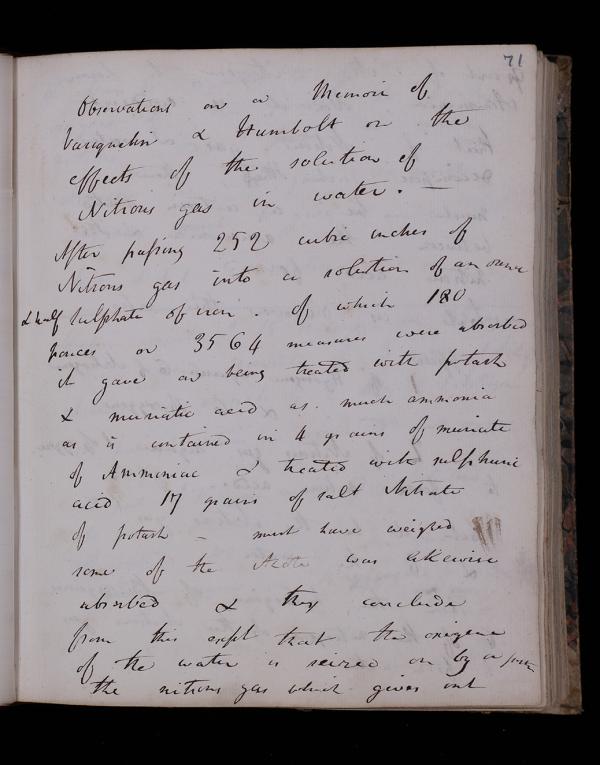 71
Observations on a Memoir of
Vauquelin & Humbolt on the
effects of the solution of
Nitrous gas in water. —
After passing 252 cubic inches of
Nitrous gas into a solution of an ounce
& half sulphate of iron. of which 180
ounces or 3564 measures were absorbed
it gave on being treated with potash
& muriatic acid as much ammonia
as is contained in 4 grains of muriate
of Ammoniac & treated with sulphuric
acid 17 grains of salt Nitrate
of potash – must have weighed
some of the Azote was likewise
absorbed & they conclude
from this expt that the oxigene
of the water is seized on by a
the nitrous gas which gives out